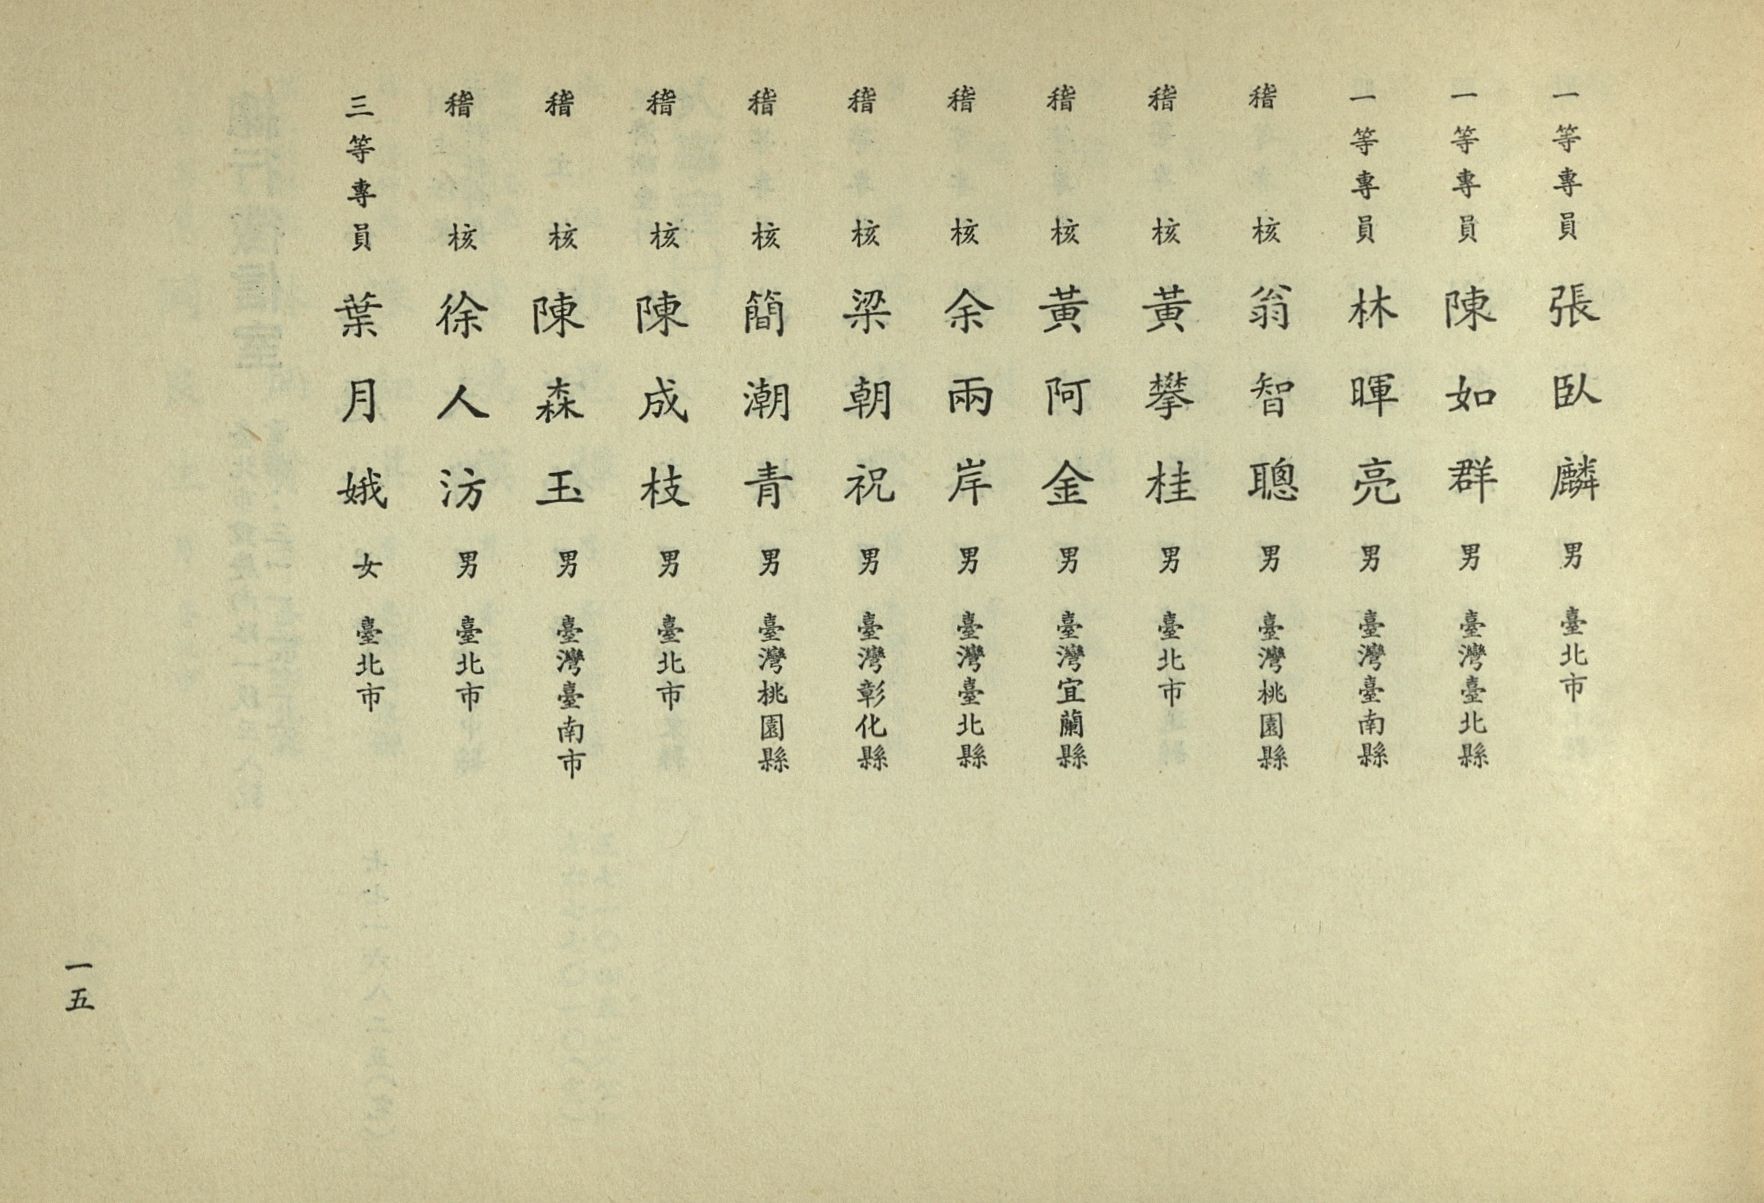 一等專員 張臥麟 男 臺北市
一等專員 陳如群 男 臺灣臺北縣
一等專員 林暉亮 男 臺灣臺南縣
稽核 翁智聰 男 臺灣桃園縣
稽核 黃攀桂 男 臺北市
稽核 黃阿金 男 臺灣宜蘭縣
稽核 余兩岸 男 臺灣臺北縣
稽核 梁朝祝 男 臺灣彰化縣
稽核 簡潮青 男 臺灣桃園縣
稽核 陳成枝 男 臺北市
稽核 陳森玉 男 臺灣臺南市
稽核 徐人汸 男 臺北市
三等專員 葉月娥 女 臺北市
一五